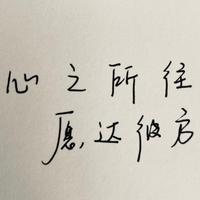 心之所往
愿达彼方